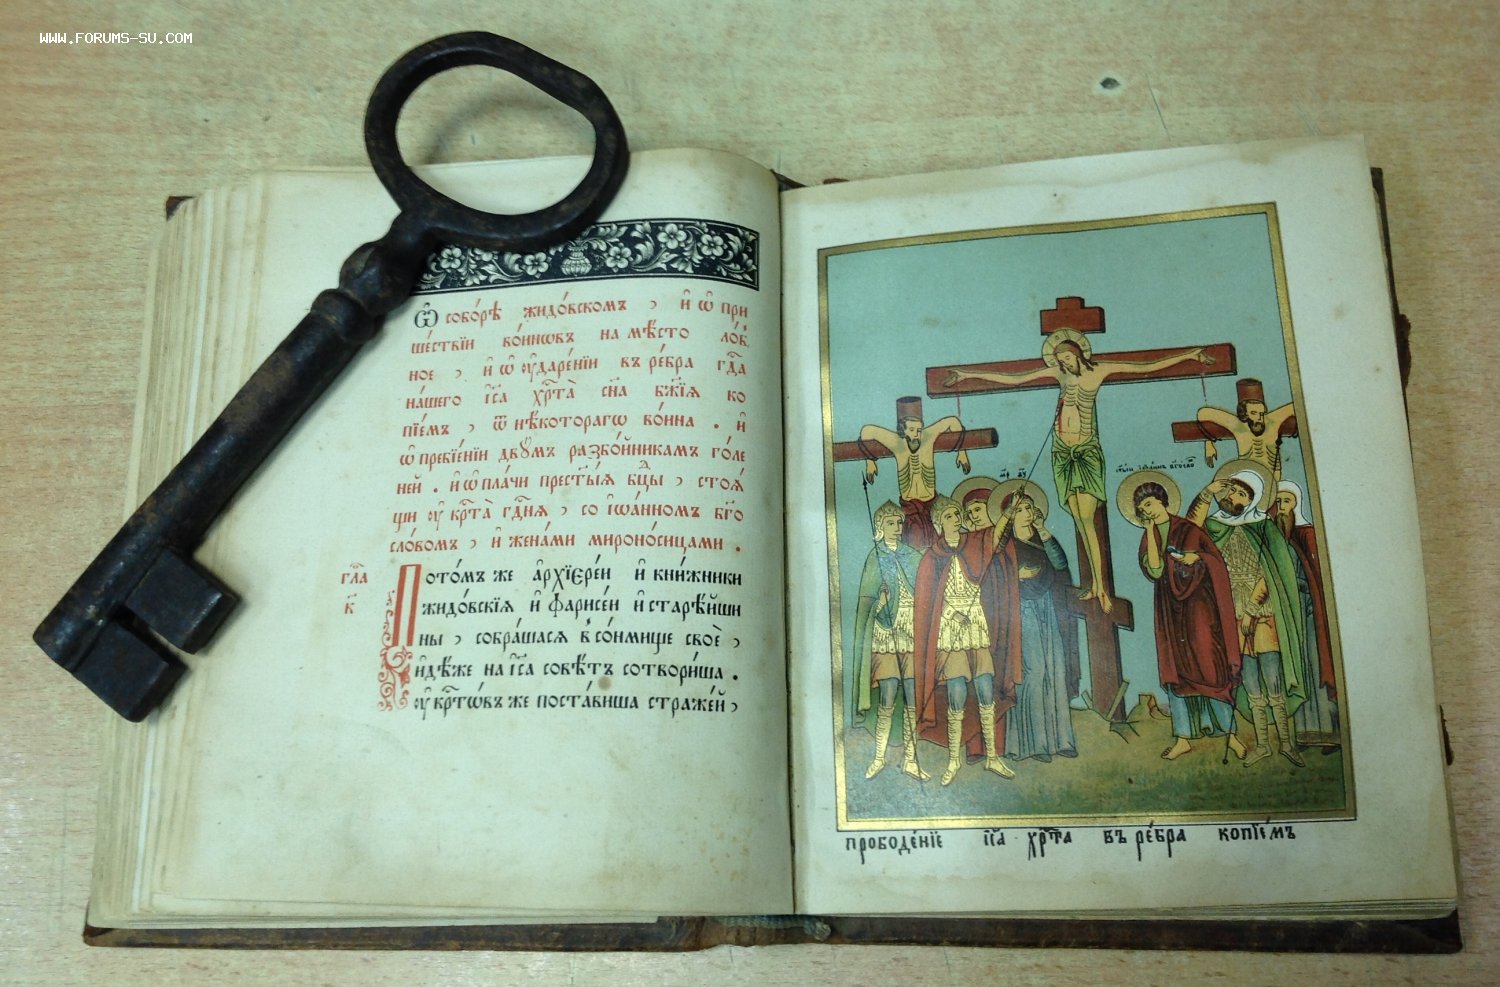 WWW.FORUMS-SU.COM
Ѡ҆ собо́рѣ жидо́вскомъ , и҆ ѡ҆ при
ше́ствїи во́инѡвъ на мѣ́сто ло́б
ное , и҆ ѡ҆ ᲂу҆даре́нїи въ ре́бра гдⷭ҇а
на́шего і҆и҃са хрⷭ҇та̀ сн҃а бж҃їѧ ко
пїе́мъ , ѿ нѣ́которагѡ во́ина . и҆
ѡ҆ пребїе́нїи двꙋ́мъ разбо́йникамъ го́ле
ней . и҆ ѡ҆ пла́чи прест҃ы́ѧ бц҃ы , стоѧ́
щи ᲂу҆ крⷭ҇та̀ гдⷭ҇нѧ , со і҆ѡа́нномъ бг҃о
сло́вомъ , и҆ жена́ми мѷроно́сицами .
гла҃ к҃
Пото́мъ же а҆рхїере́и и҆ кни́жники
жидо́вскїѧ и҆ фарисе́и и҆ старѣ́йши
ны , собра́шасѧ в со́нмище своѐ ,
и҆дѣ́же на і҆и҃са совѣ́тъ сотвори́ша .
ᲂу҆ крⷭ҇тѡ́въ же поста́виша страже́й ,
мр҃ ѳу҃
ст҃ы́й і҆ѡа́ннъ бг҃осло́въ
прободе́нїе і҆и҃са хрⷭ҇та̀ въ ре́бра копїе́мъ